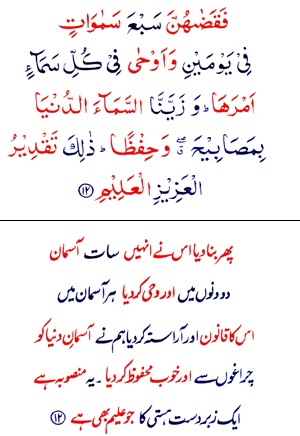 فَقَضٰىهُنَّ سَبْعَ سَمٰوَاتٍ
فِيْ يَوْمَيْنِ وَ اَوْحٰى فِيْ كُلِّ سَمَآءٍ
اَمْرَهَا ؕ وَ زَيَّنَّا السَّمَآءَ الدُّنْيَا
بِمَصَابِيْحَ ۖۗ وَ حِفْظًا ؕ ذٰلِكَ تَقْدِيْرُ
الْعَزِيْزِ الْعَلِيْمِ ۝۱۲
پھر بنا دیا اس نے انہیں سات آسمان
دو دنوں میں اور وحی کر دیا ہر آسمان میں
اس کا قانون اور آراستہ کر دیا ہم نے آسمانِ دنیا کو
چراغوں سے اور خوب محفوظ کر دیا ۔ یہ منصوبہ ہے
ایک زبردست ہستی کا جو علیم بھی ہے ۝۱۲